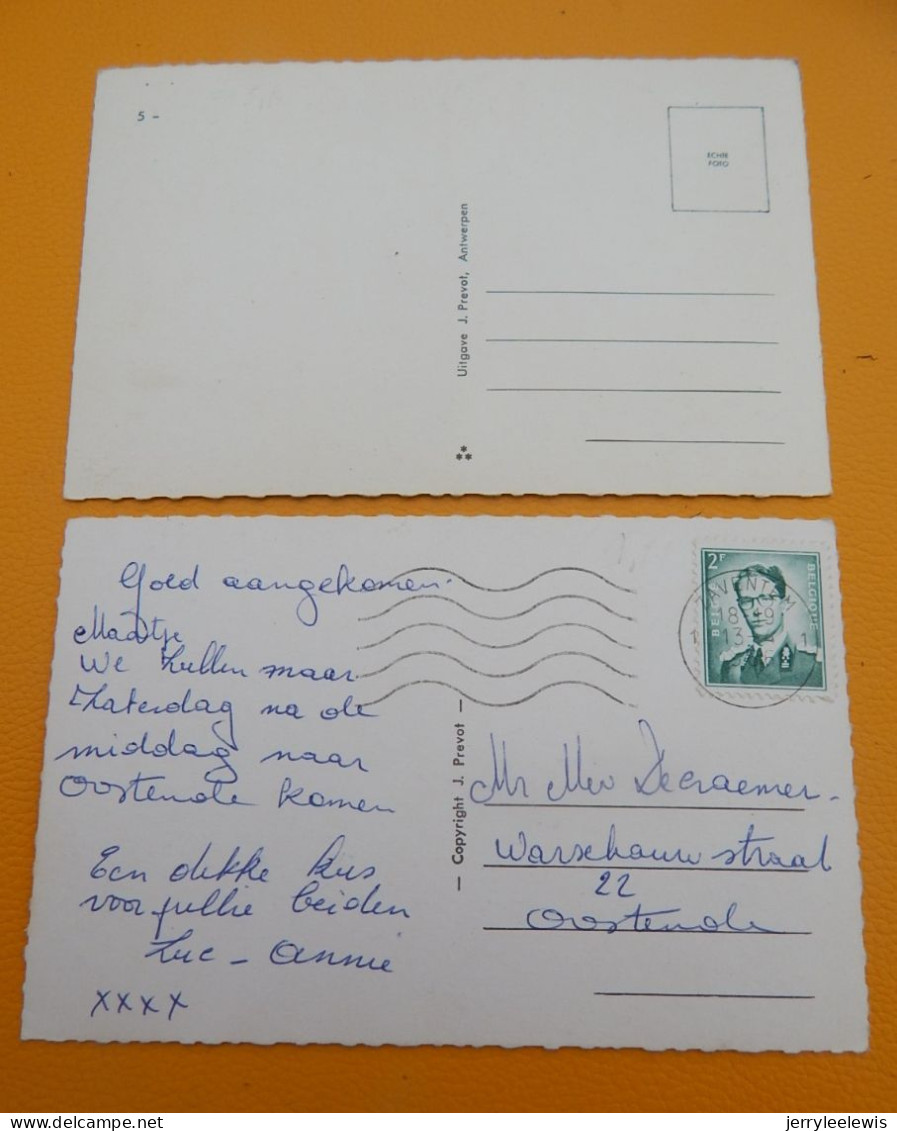 5 -
ECHTE
FOTO
Uitgave J. Prevot, Antwerpen
Goed aangekomen.
Maatje
We zullen maar
Zaterdag na de
middag naar
Oostende komen
Een dikke kus
voor jullie beiden
Luc - Annie
xxxx
— Copyright J. Prevot —
2F
BELGIQUE
AVENTEM
8 - 9
13
1
Mr Mev Decraemer.
Warschauw straat
22
Oostende
jerryleelewis